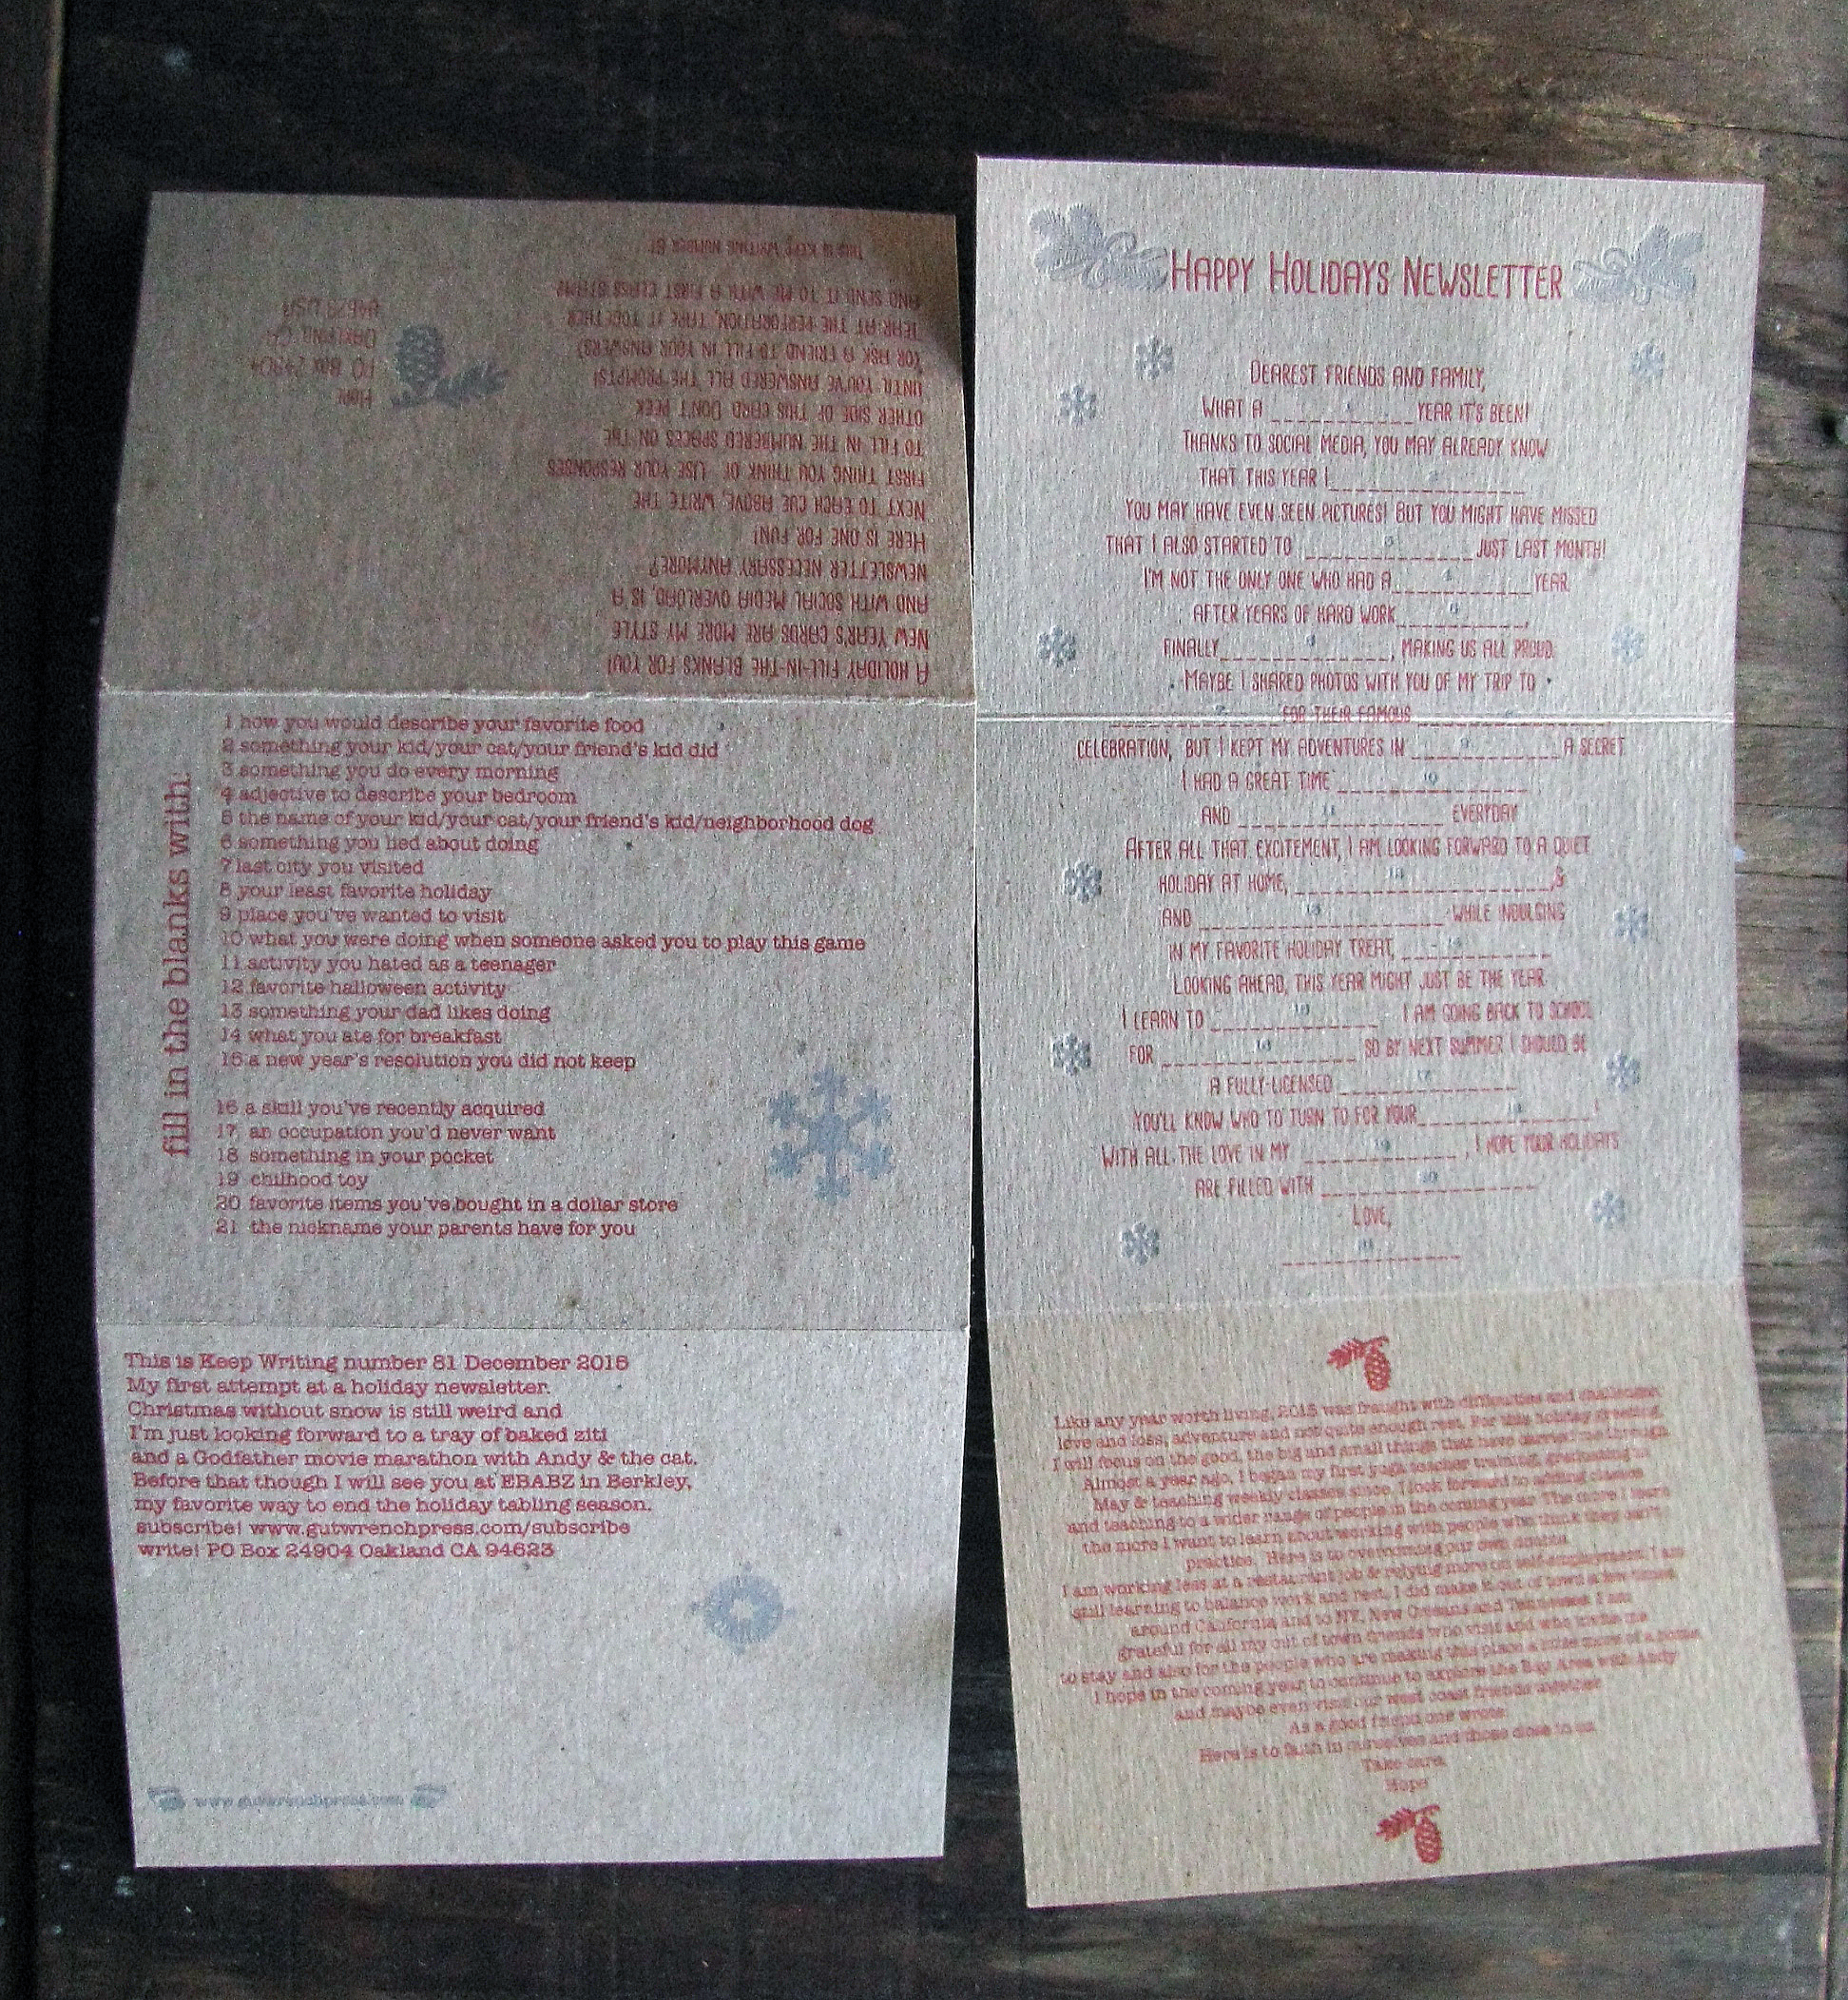 A HOLIDAY FILL-IN-THE BLANKS FOR YOU!
NEW YEAR'S CARDS ARE MORE MY STYLE
AND WITH SOCIAL MEDIA OVERLOAD, IS A
NEWSLETTER NECESSARY ANYMORE?
HERE IS ONE FOR FUN!
NEXT TO EACH CUE ABOVE, WRITE THE
FIRST THING YOU THINK OF. USE YOUR RESPONSES
TO FILL IN THE NUMBERED SPACES ON THE
OTHER SIDE OF THIS CARD. DON'T PEEK
UNTIL YOU'VE ANSWERED ALL THE PROMPTS!
(OR ASK A FRIEND TO FILL IN YOUR ANSWERS)
TEAR AT THE PERFORATION, TAPE IT TOGETHER
AND SEND IT TO ME WITH A FIRST CLASS STAMP
THIS IS KEEP WRITING NUMBER 81
HOPE
PO BOX 24904
OAKLAND CA
94623 USA
fill in the blanks with:
1 how you would describe your favorite food
2 something your kid/your cat/your friend's kid did
3 something you do every morning
4 adjective to describe your bedroom
5 the name of your kid/your cat/your friend's kid/neighborhood dog
6 something you lied about doing
7 last city you visited
8 your least favorite holiday
9 place you've wanted to visit
10 what you were doing when someone asked you to play this game
11 activity you hated as a teenager
12 favorite halloween activity
13 something your dad likes doing
14 what you ate for breakfast
15 a new year's resolution you did not keep
16 a skill you've recently acquired
17 an occupation you'd never want
18 something in your pocket
19 chilhood toy
20 favorite items you've bought in a dollar store
21 the nickname your parents have for you
This is Keep Writing number 81 December 2015
My first attempt at a holiday newsletter.
Christmas without snow is still weird and
I'm just looking forward to a tray of baked ziti
and a Godfather movie marathon with Andy & the cat.
Before that though I will see you at EBABZ in Berkley,
my favorite way to end the holiday tabling season.
subscribe! www.gutwrenchpress.com/subscribe
write! PO Box 24904 Oakland CA 94623
www.gutwrenchpress.com
HAPPY HOLIDAYS NEWSLETTER
DEAREST FRIENDS AND FAMILY,
WHAT A 1 YEAR IT'S BEEN!
THANKS TO SOCIAL MEDIA, YOU MAY ALREADY KNOW
THAT THIS YEAR I 2
YOU MAY HAVE EVEN SEEN PICTURES! BUT YOU MIGHT HAVE MISSED
THAT I ALSO STARTED TO 3 JUST LAST MONTH!
I'M NOT THE ONLY ONE WHO HAD A 4 YEAR.
AFTER YEARS OF HARD WORK 5,
FINALLY 6, MAKING US ALL PROUD.
MAYBE I SHARED PHOTOS WITH YOU OF MY TRIP TO
7 FOR THEIR FAMOUS 8
CELEBRATION, BUT I KEPT MY ADVENTURES IN 9 A SECRET.
I HAD A GREAT TIME 10
AND 11 EVERYDAY
AFTER ALL THAT EXCITEMENT, I AM LOOKING FORWARD TO A QUIET
HOLIDAY AT HOME, 12
AND 13 WHILE INDULGING
IN MY FAVORITE HOLIDAY TREAT, 14
LOOKING AHEAD, THIS YEAR MIGHT JUST BE THE YEAR
I LEARN TO 15 I AM GOING BACK TO SCHOOL
FOR 16 SO BY NEXT SUMMER I SHOULD BE
A FULLY-LICENSED 17
YOU'LL KNOW WHO TO TURN TO FOR YOUR 18!
WITH ALL THE LOVE IN MY 19, I HOPE YOUR HOLIDAYS
ARE FILLED WITH 20
LOVE,
21
Like any year worth living, 2015 was fraught with difficulties and challenges,
love and loss, adventure and not quite enough rest. For this holiday greeting,
I will focus on the good, the big and small things that have carried me through
Almost a year ago, I began my first yoga teacher training, graduating in
May & teaching weekly classes since. I look forward to adding classes
and teaching to a wider range of people in the coming year. The more I learn
the more I want to learn about working with people who think they can't
practice. Here is to overcoming our own doubts.
I am working less at a restaurant job & relying more on self-employment. I am
still learning to balance work and rest, I did make it out of town a few times
around California and to NY, New Orleans and Tennessee. I am
grateful for all my out of town friends who visit and who invite me
to stay and also for the people who are making this place a little more of a home
I hope in the coming year to continue to explore the Bay Area with Andy
and maybe even visit our west coast friends together
As a good friend one wrote:
Here is to faith in ourselves and those close to us.
Take care,
Hope